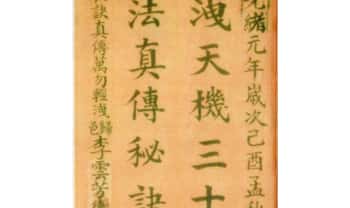 光緒元年歲次己酉孟秋
洩天機三十
法真傳秘訣
訣真傳萬勿輕洩邑李雲芳